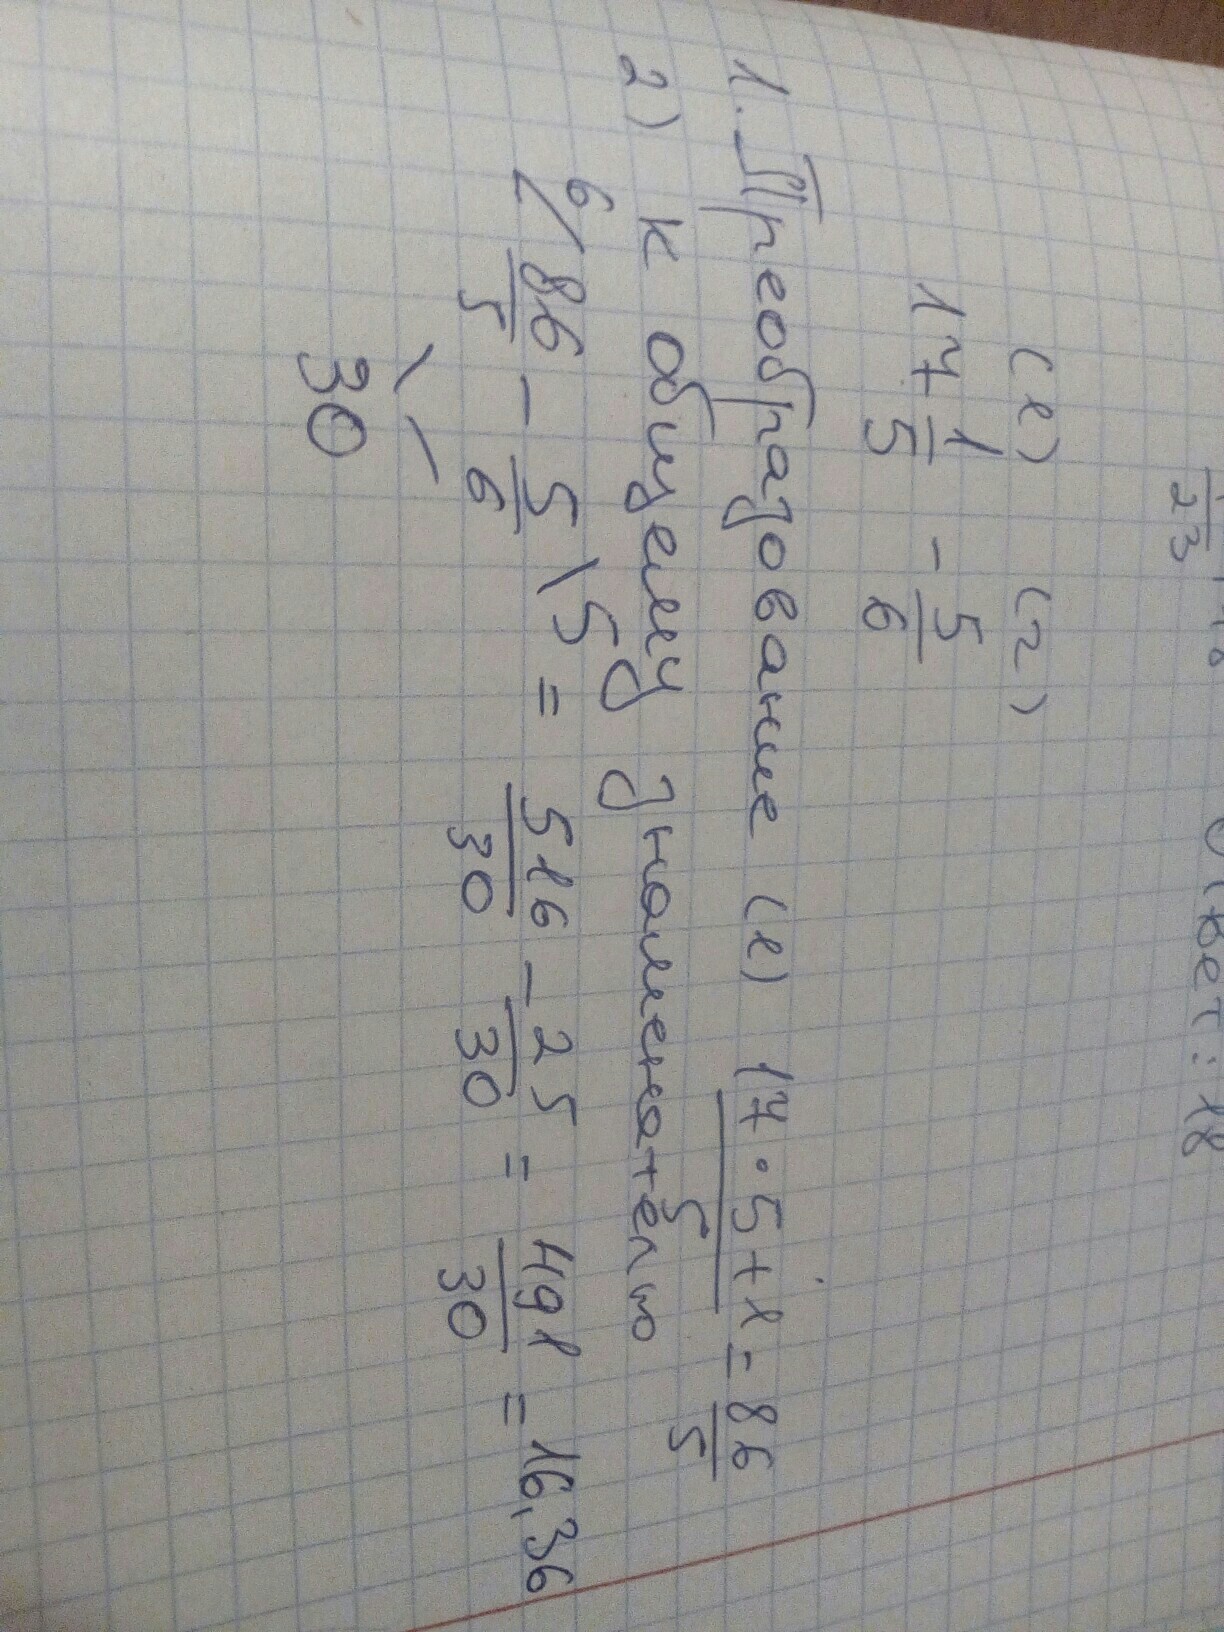 23
Ответ: 18
(1) (2)
17 1/5 - 5/6
1. Преобразование (1) 17·5+1/5 = 86/5
2) к общему знаменателю
6/ 86/5 - 5/6 \5 = 516/30 - 25/30 = 491/30 = 16,36
30